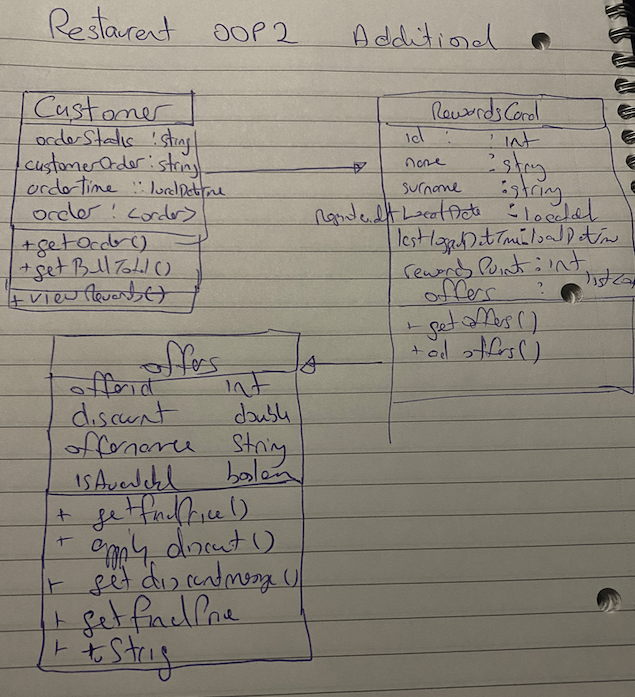 Restaurent OOP2 Additional
Customer
orderStatus : string
customerOrder : string
ordertime :: localDateTime
order : <order>
+ getOrder()
+ getBillTotal()
+ viewRewards()
RewardsCard
id : : int
name : string
surname : string
LocalDate :
rewardsPoint : int
offers :
+ getoffers()
+ offers()
offers
offerid int
discount double
offername String
boolean
+ getfinalPrice()
+ apply discount()
+ getdiscountmessage()
+ getfinalPrice
+ toString